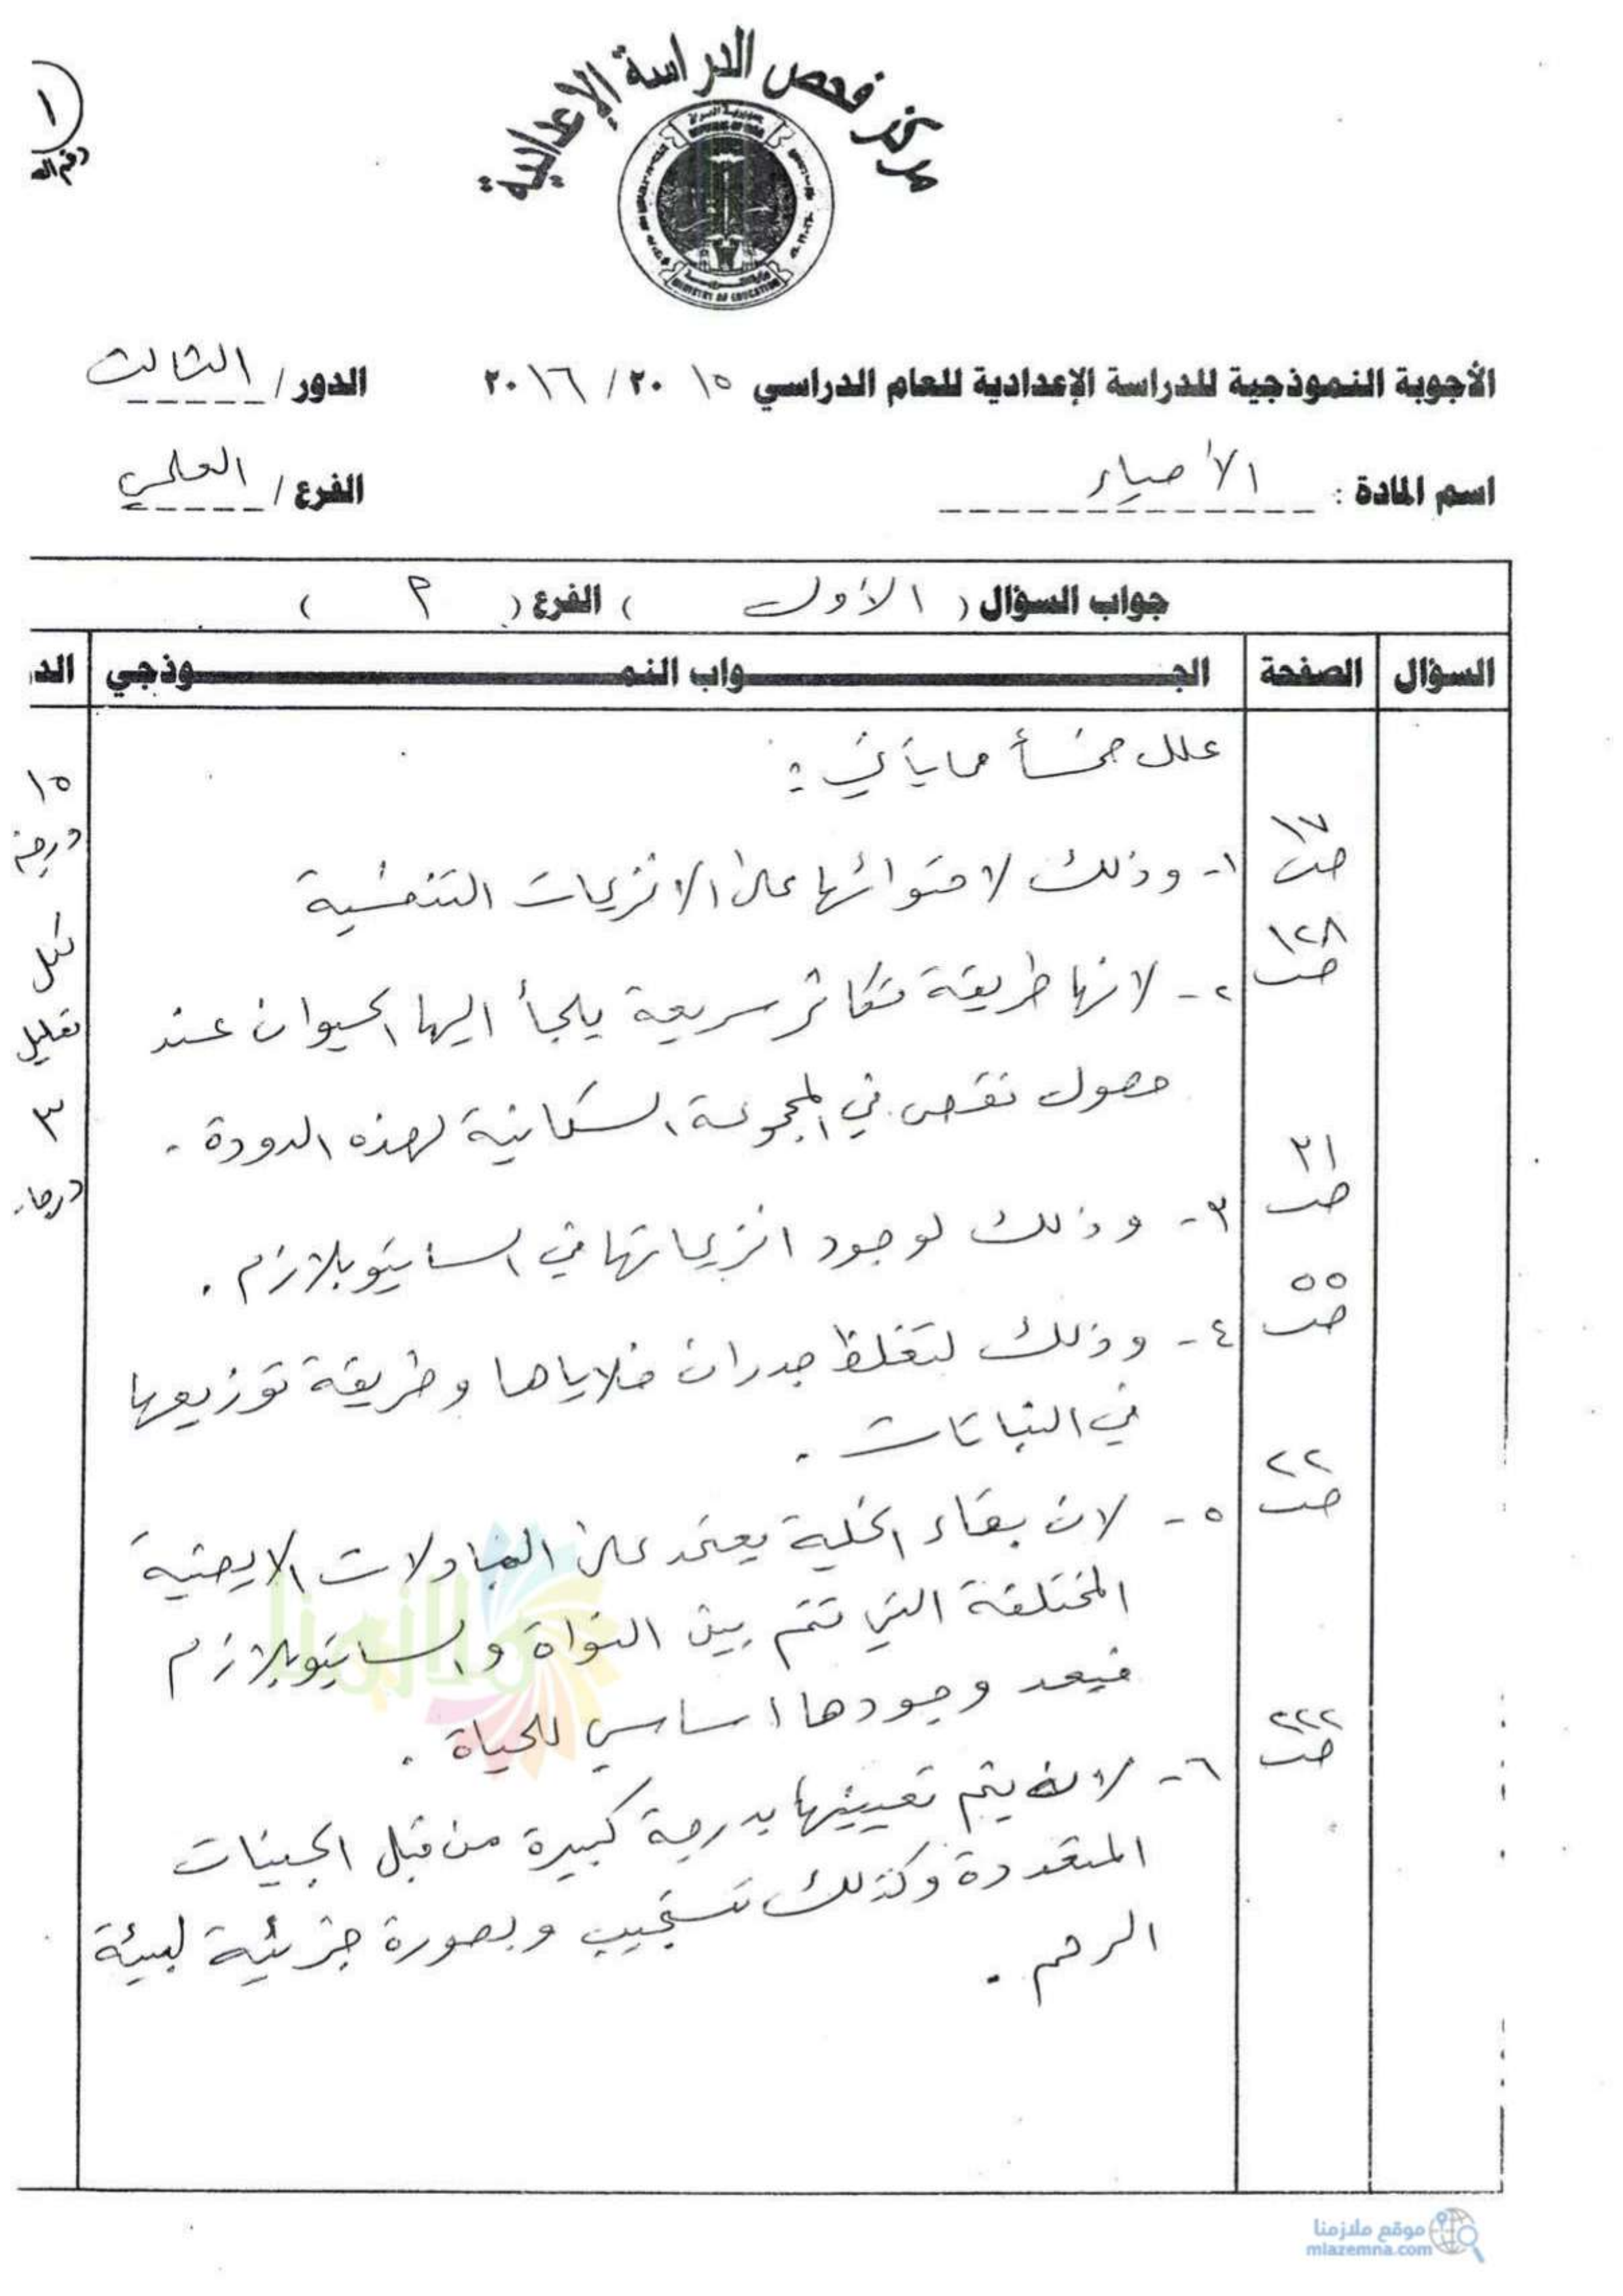 مركز فحص الدراسة الإعدادية
MINISTRY OF EDUCATION
١
رقم
الأجوبة النموذجية للدراسة الإعدادية للعام الدراسي ٢٠١٥ / ٢٠١٦ الدور / الثالث
اسم المادة : الأحياء الفرع / العلمي
جواب السؤال ( الأول ) الفرع ( ٩ )
السؤال الصفحة الجـــواب النمـــوذجي الد
علل خمساً مما يأتي :
١٥
درجة
لكل
تعليل
٣
ص١٧ ١- وذلك لاحتوائها على الانزيمات التنفسية
ص١٢٨ ٢- لانها طريقة تكاثر سريعة يلجأ اليها الحيوان عند
حصول نقص في المجموعة السكانية لهذه الدودة .
ص٣١ ٣- وذلك لوجود انزيماتها في السايتوبلازم .
ص٥٥ ٤- وذلك لتغلظ جدران خلاياها وطريقة توزيعها
في النباتات .
ص٢٢ ٥- لان بقاء الخلية يعتمد على التبادلات الايضية
المختلفة التي تتم بين النواة والسايتوبلازم
فيعد وجودها اساسي للحياة .
ص٢٢٢ ٦- لانه يتم تعيينها بدرجة كبيرة من قبل الجينات
المتعددة وكذلك تستجيب وبصورة جزئية لبيئة
الرحم .
ملازمنا
موقع ملازمنا
mlazemna.com